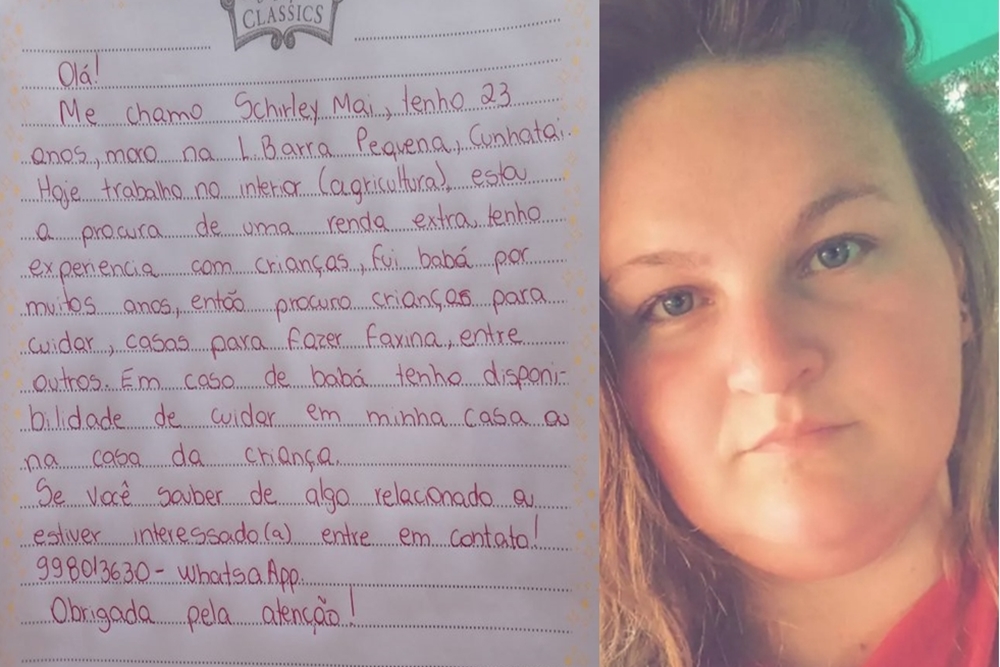 CLASSICS
Olá!
Me chamo Schirley Mai, tenho 23
anos, moro na L. Barra Pequena, Cunhatai.
Hoje trabalho no interior (agricultura), esta
a procura de uma renda extra, tenho
experiencia com crianças, fui babá por
muitos anos, então procuro crianças para
cuidar, casas para fazer faxina, entre
outros. Em caso de babá tenho disponi-
bilidade de cuidar em minha casa ou
na casa da criança.
Se você souber de algo relacionado ou
estiver interessado(a) entre em contato!
998013630 - WhatsaApp.
Obrigada pela atenção!